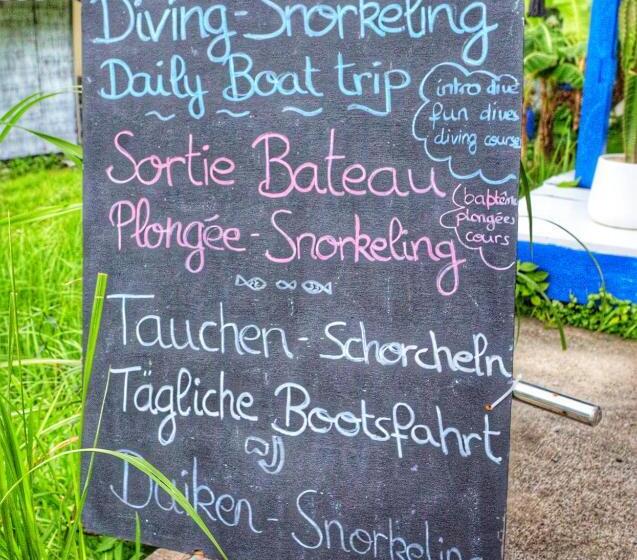 Diving-Snorkeling
Daily Boat trip
intro dive
fun dives
diving course
Sortie Bateau
Plongée-Snorkeling
(baptême
plongées
cours
Tauchen-Schorcheln
Tägliche Bootsfahrt
Duiken-Snorkeling